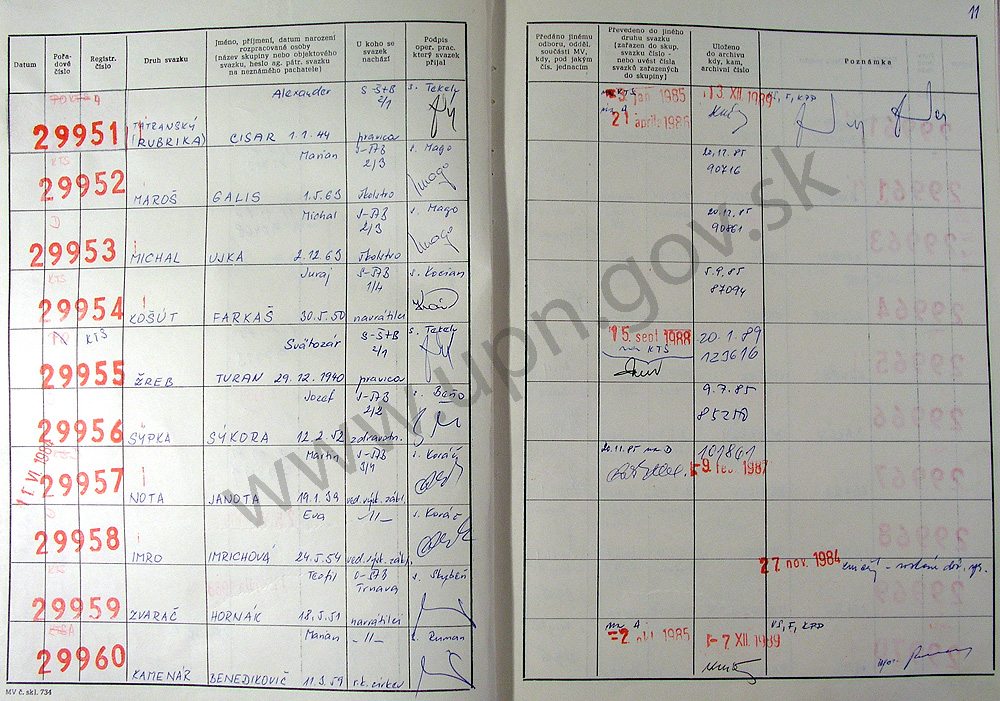 11
Datum
Pořa-
dové
číslo
Registr.
číslo
Druh svazku
Jméno, příjmení, datum narození
rozpracované osoby
(název skupiny nebo objektového
svazku, heslo ag. pátr. svazku
na neznámého pachatele)
U koho se
svazek
nachází
Podpis
oper. prac.
který svazek
přijal
Předáno jinému
odboru, odděl.
součásti MV,
kdy, pod jakým
čís. jednacím
Převedeno do jiného
druhu svazku
(zařazen do skup.
svazku číslo -
nebo uvést čísla
svazků zařazených
do skupiny)
Uloženo
do archivu
kdy, kam,
archivní číslo
Poznámka
Alexander S-ŠtB s. Tekely
2/1
29951 TATRANSKÝ
(RUBRIKA) CISAR 1.1.44 pravica
jan 1985 13. XII. 1989 VŠ, F, KPD
21 april 1986
KTS Marian 2/3 s. Mago
29952 MAROŠ GALIS 1.5.63 školstvo
20.12.85
90716
D Michal 2/3 s. Mago
29953 MICHAL UJKA 2.12.63 školstvo
20.12.85
KTS Juraj 1/4 s. Kocian
29954 KOŠÚT FARKAŠ 30.5.50 navrátilci
5.9.85
87094
KTŠ Svätozár S-ŠtB s. Tekely
2/1
29955 ŽREB TURAN 29.12.1940 pravica
15. sept 1988 20.1.89
na KTŠ 123616
Jozef 2/2 s. Beňo
29956 SÝPKA SÝKORA 12.2.52 zdravotn.
9.7.85
Martin 3/4 s. Koráč
29957 NOTA JANOTA 19.1.39 ved. výk. zákl.
20.11.85 na D 101861
9. feb. 1987
1. VI. 1984
Eva -11- s. Koráč
29958 IMRO IMRICHOVÁ 24.5.54 ved. výk. zákl.
27 nov. 1984
Teofil Trnava s. Skybéň
29959 ZVARAČ HORNÁK 18.5.51 navrátilci
Marian -11- s. Ruman
29960 KAMENÁR BENEDIKOVIČ 11.9.59 r.k. cirkev
na A
2. okt 1985 7. XII. 1989 VŠ, F, KPD
MV č. skl. 734
www.upn.gov.sk